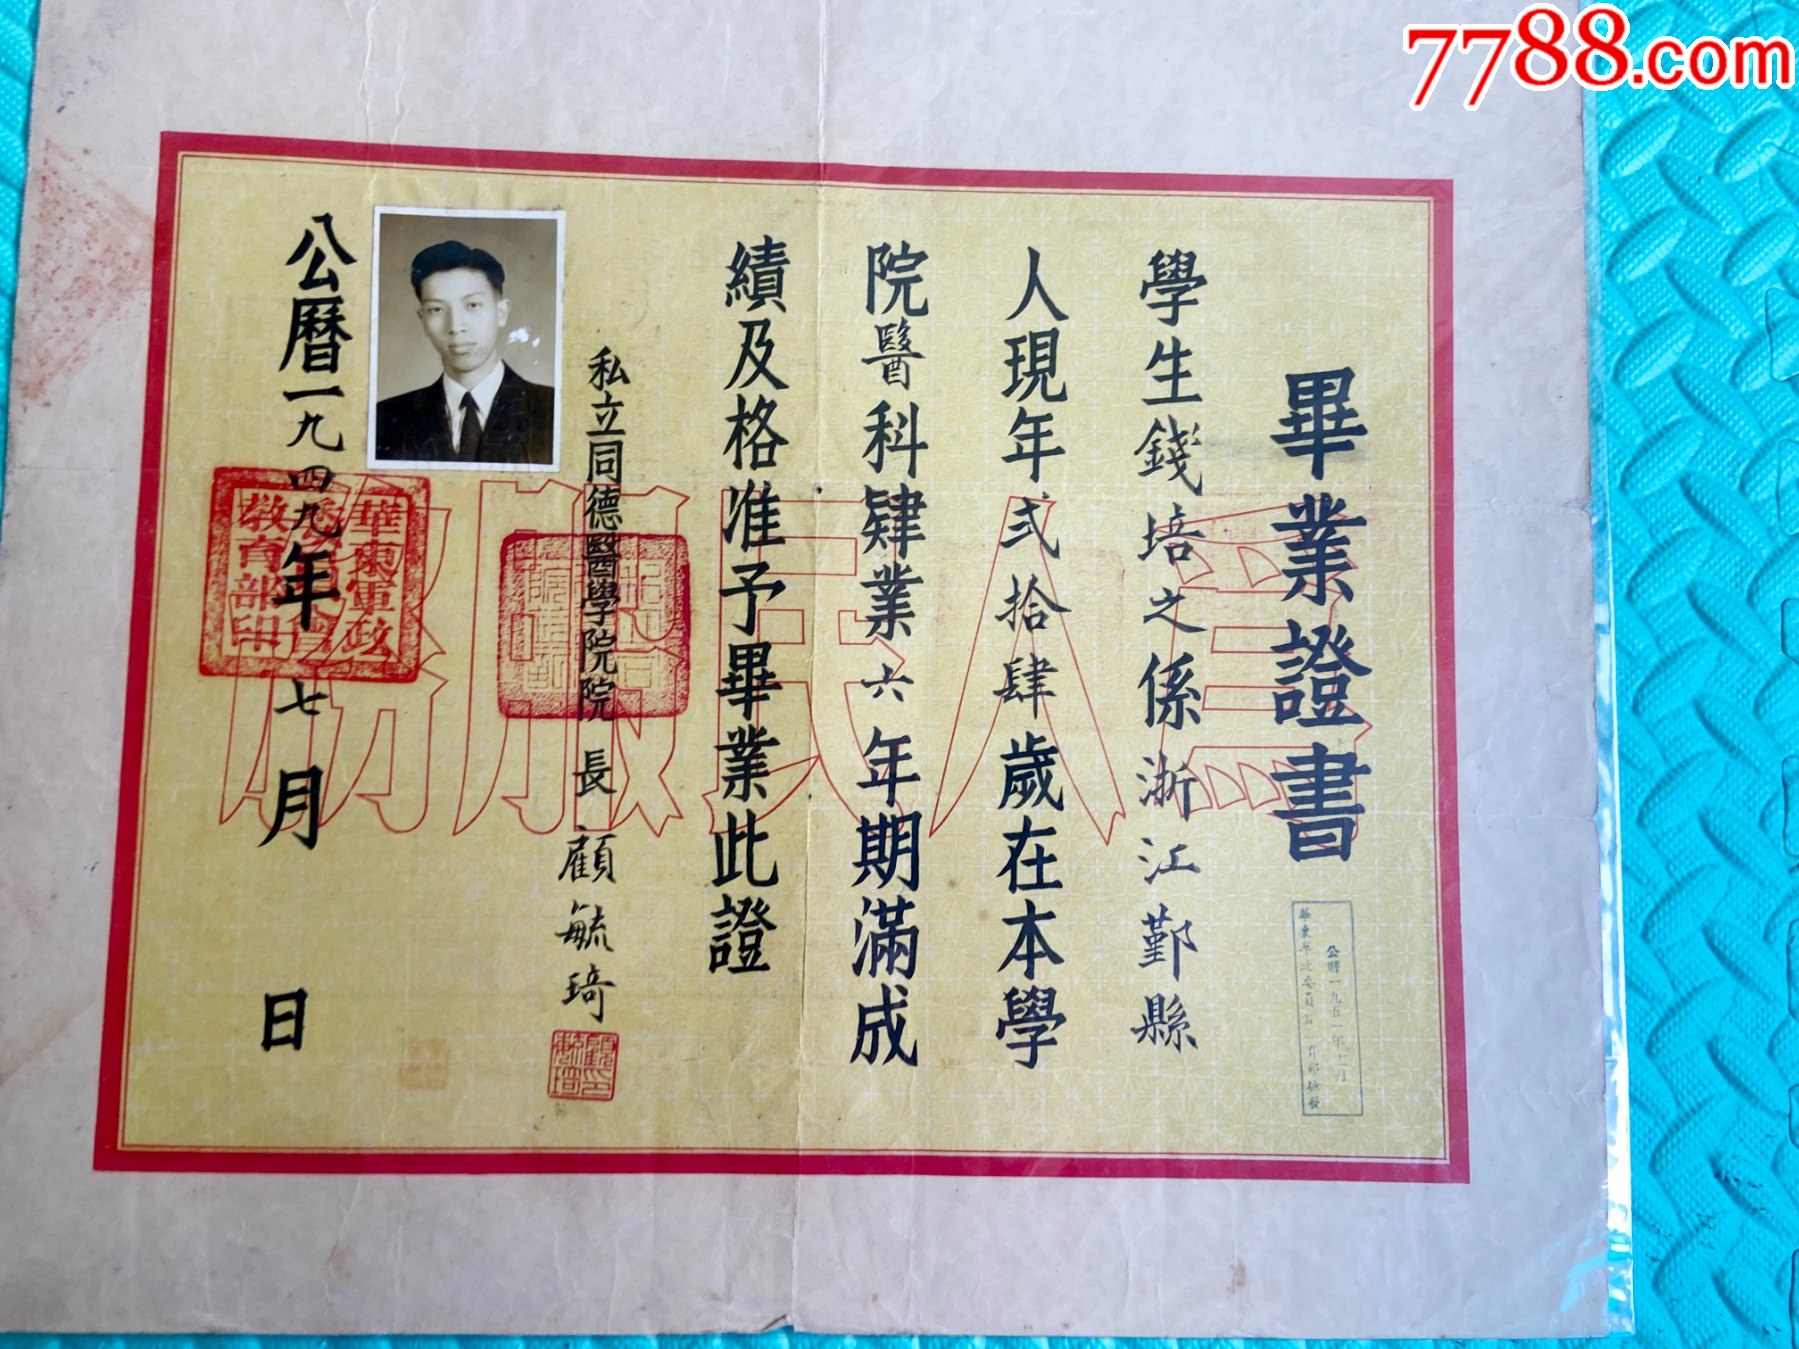 7788.com
畢業證書
學生錢培之係浙江鄞縣
人現年弍拾肆歲在本學
院醫科肄業六年期滿成
績及格准予畢業此證
私立同德醫學院院長 顧毓琦
公曆一九四九年七月 日
為人民服務
華東軍政
委員會
教育部印
顧毓琦印
公曆一九五一年十月
華東軍政委員會 育部驗發